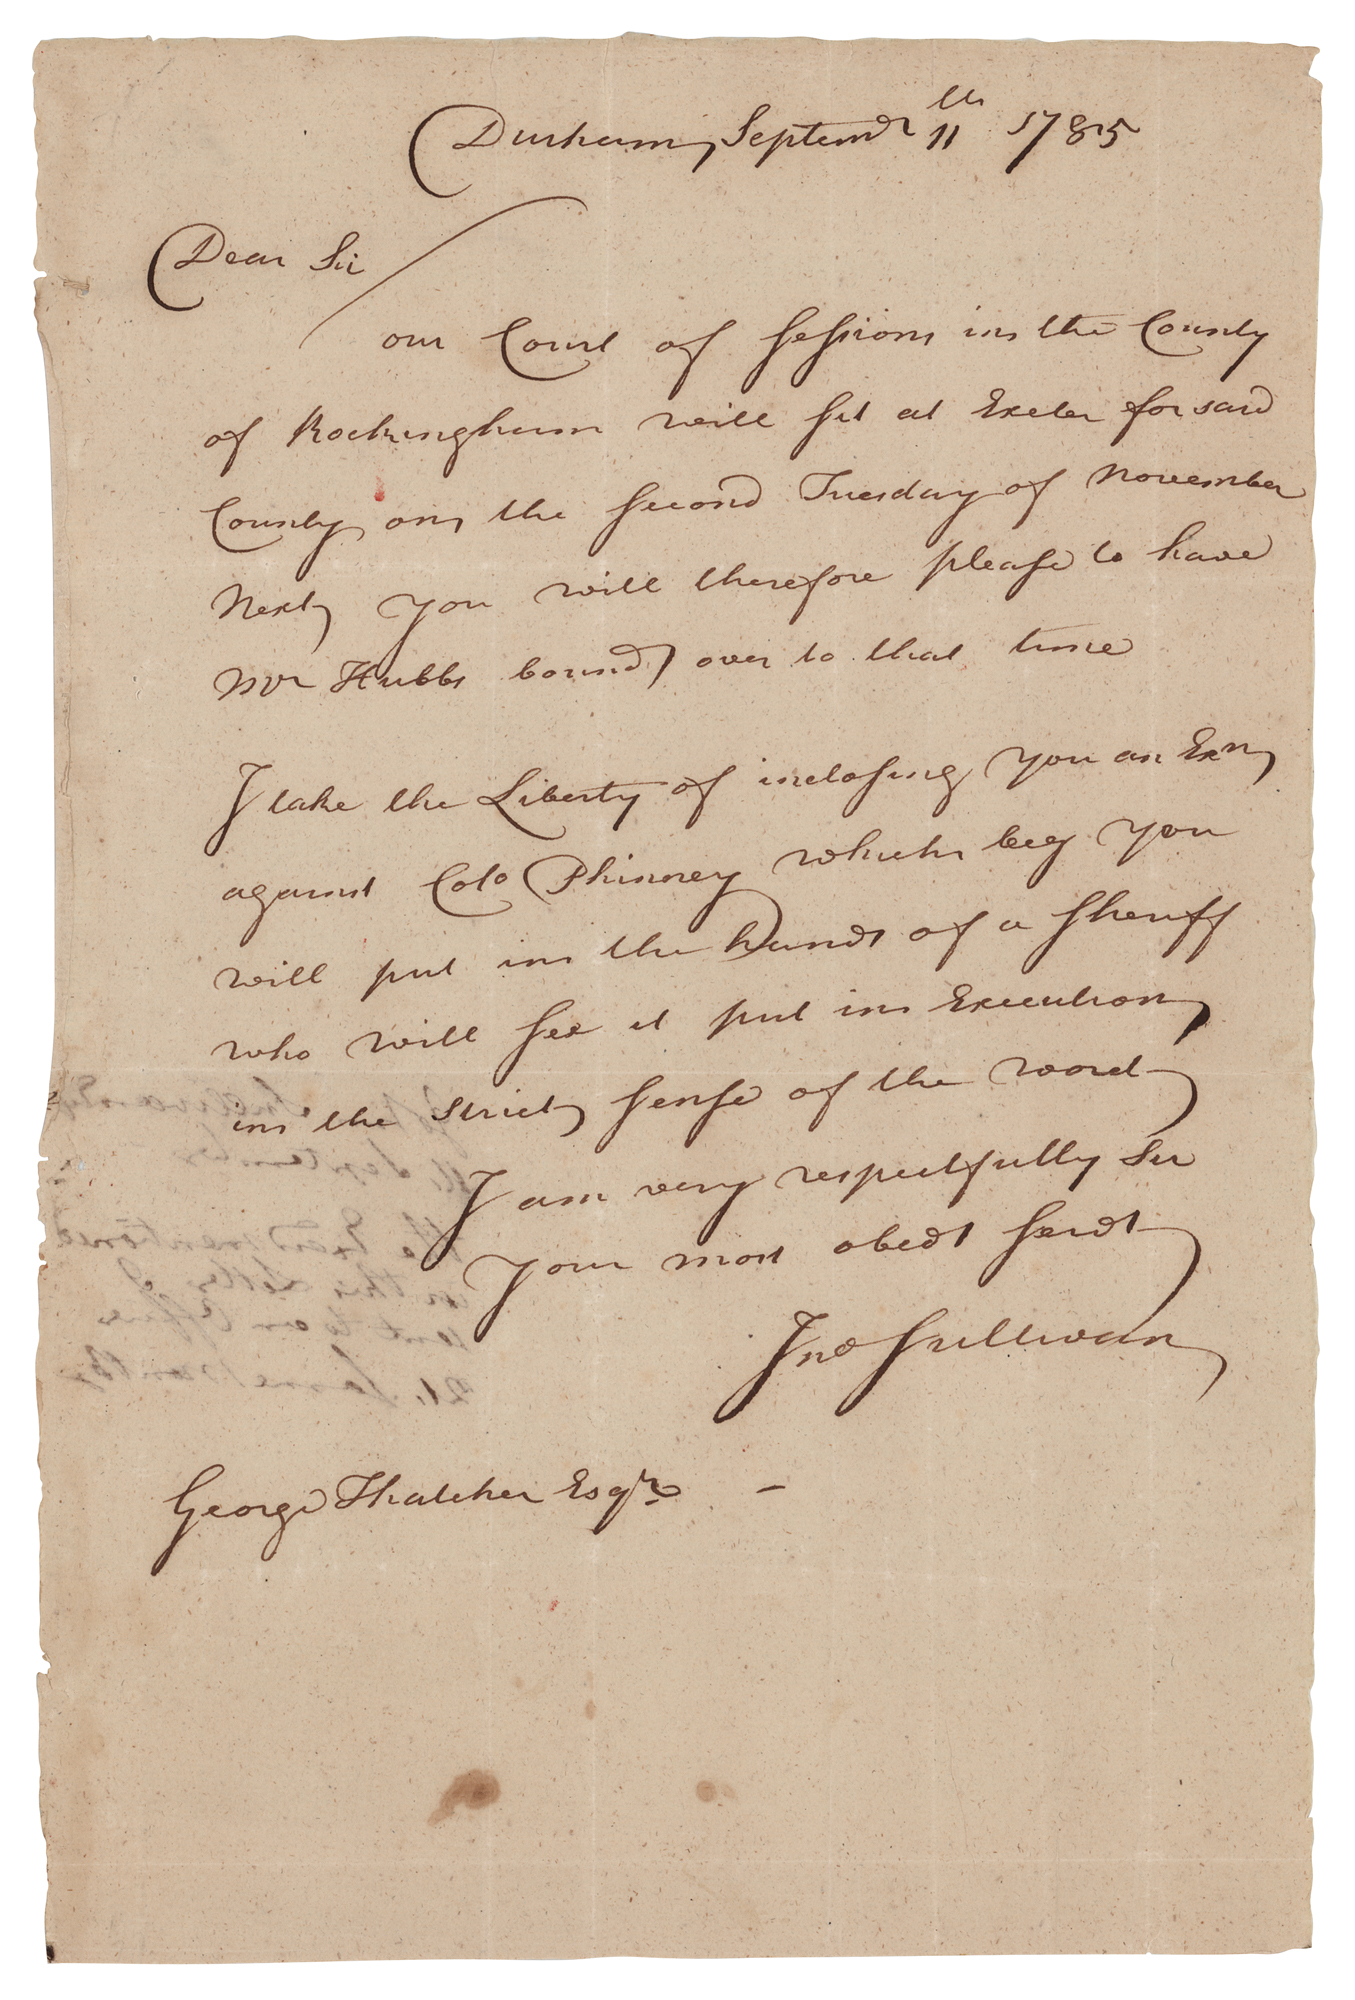 Durham Septemr 11th 1785
Dear Sir
our Court of Sessions in the County
of Rockingham will sit at Exeter for said
County on the second Tuesday of November
Next you will therefore please to have
Mr Hubbs bound over to that time
I take the Liberty of inclosing you an Exn
against Colo Phinney which beg you
will put in the hands of a Sheriff
who will see it put in Execution
in the strict sense of the word
I am very respectfully Sir
your most obedt servt
Jno Sullivan
George Thatcher Esqr –